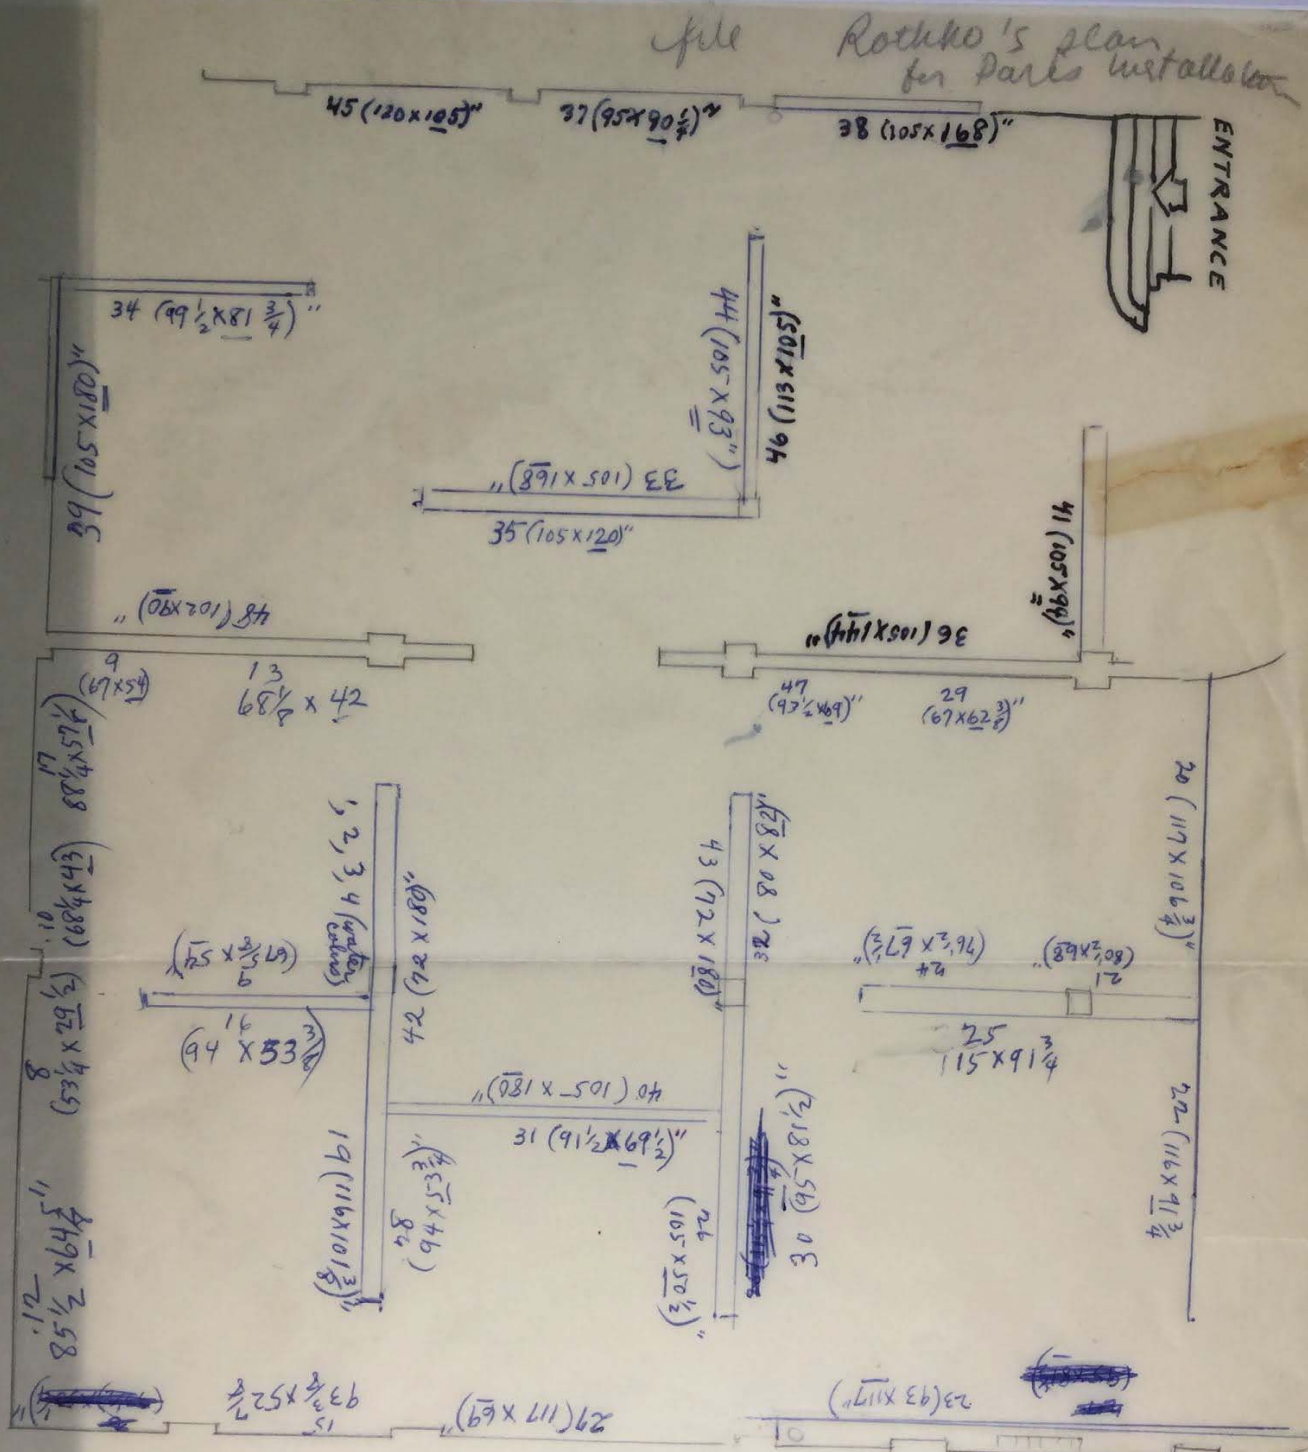 file Rothko's plan
for Paris installation
45 (120x105)"
37 (95x90 1/4)"
38 (105x168)"
ENTRANCE
34 (99 1/2 x 81 3/4)"
39 (105x180)"
44 (105x93")
46 (113x105)"
33 (105x168)"
35 (105x120)"
41 (105x94)"
48 (102x90)"
36 (105x144)"
9
(67x54)
13
68 1/8 x 42
47
(93 1/2x69)"
29
(67x62 3/8)"
17
88 1/4 x 57 1/2)
10
(68 1/4 x 43)
1, 2, 3, 4 (water
colors)
42 (72x180)"
43 (72x180)"
32 (80x82)"
20 (117x106 3/4)"
(67 5/8 x 54)
16
(94 x 53 3/8)
24
(76 1/2 x 67 1/2)"
21
(80 1/2x68)"
25
115x91 3/4
8
(53 1/4 x 29 1/2)
40 (105x180)"
31 (91 1/2x69 1/2)"
19 (116x101 3/8)"
28
(94x53 3/4)"
26
(105x50 1/2)"
30 (95x81 1/2)"
22 (116x91 3/4
12
85 1/2 x 64 5/8"
15
93 3/8 x 52 7/8
27 (117x69)"
23 (93x117"